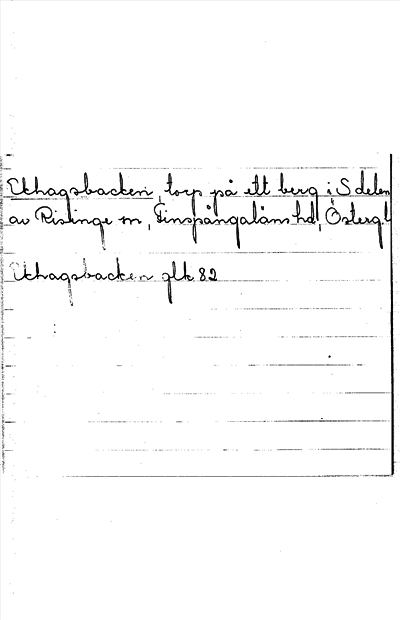 Uthagsbacken, torp på ett berg i S delen
av Risinge sn, Finspångaläns hd, Östergl.
Uthagsbacken glk 82